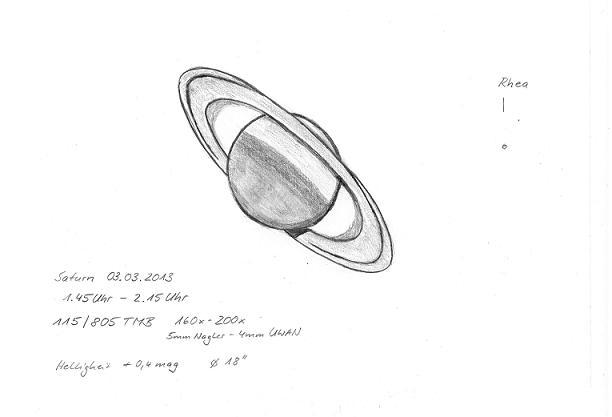 Rhea
Saturn 03.03.2013
1.45 Uhr - 2.15 Uhr
115/805 TMB 160x-200x
5mm Nagler - 4mm UWAN
Helligkeit +0,4 mag Ø 18"